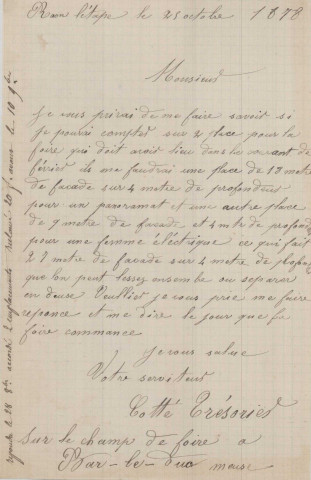 Raon l'étape le 25 octobre 1878
Monsieur
Je vous prirai de me faire savoir si
je pourai compter sur 2 place pour la
foire qui doit avoir lieu dans le courant de
février il me faudrai une place de 13 metre
de facade sur 4 metre de profondeur
pour un panoramat et une autre place
de 9 metre de facade et 4 mtr de profond
pour une femme éléctrique ce qui fait
27 metre de facade sur 4 metre de
que lon peut lessez ensemble ou separer
en deux Veuillier je vous prie me faire
reponce et me dire le jour que la
foire commance
Je vous salue
Votre serviteur
Cotté Trésorier
Sur le champ de foire a
Bar-le-duc meuse
repondu le 28 8bre accordé 2 emplacements